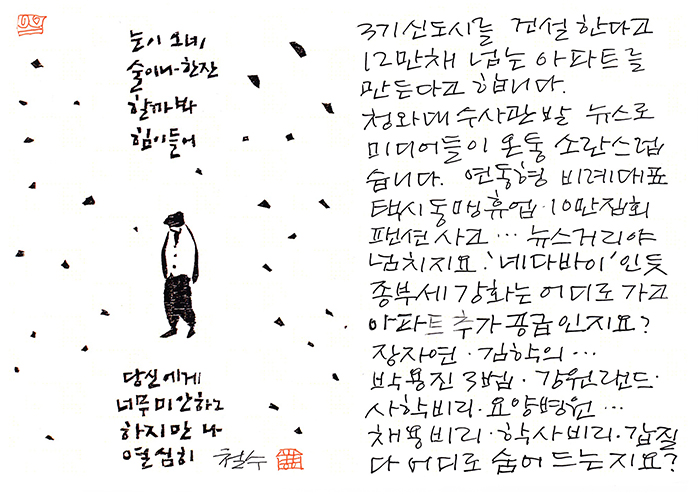 눈이 오네
술이나 한잔
할까봐
힘이들어
당신에게
너무 미안하고
하지만 나
열심히 철수
3기신도시를 건설 한다고
12만채 넘는 아파트를
만든다고 합니다.
청와대 수사관 발 뉴스로
미디어들이 온통 소란스럽
습니다. 연동형 비례대표
택시동맹휴업·10만집회
펜션사고… 뉴스거리야
넘치지요. '네다바이'인듯
종부세 강화는 어디로 가고
아파트 추가 공급인지요?
장자연·김학의…
박용진 3법·강원랜드·
사학비리·요양병원…
채용비리·학사비리·갑질
다 어디로 숨어 드는지요?